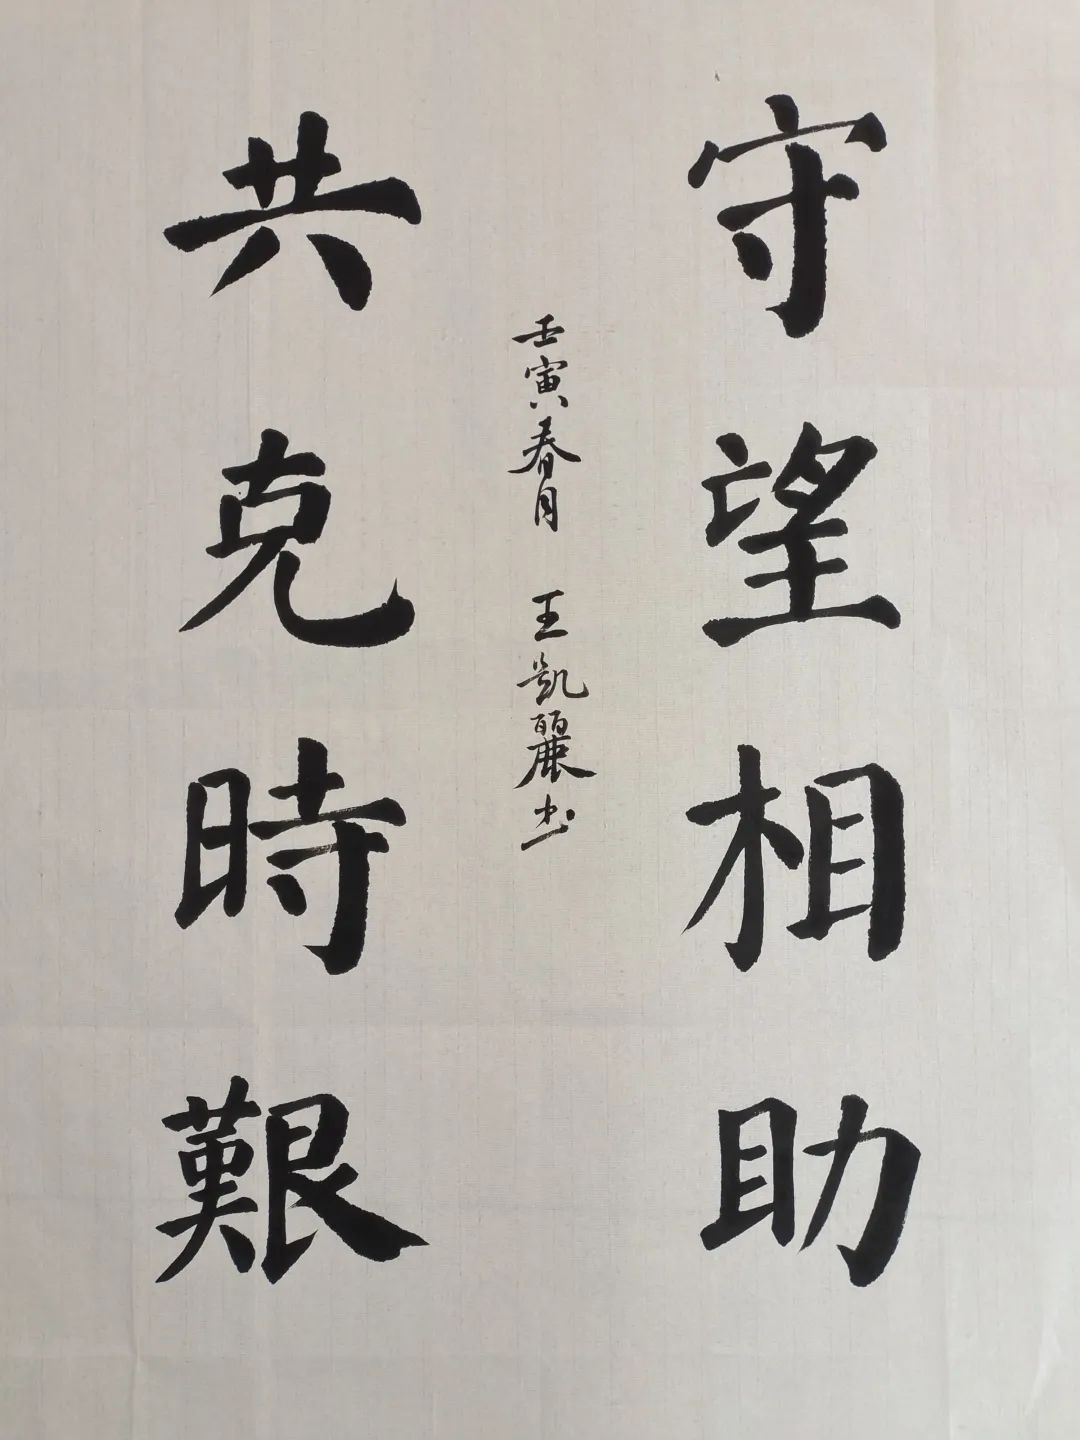 守望相助
共克時艱
壬寅春月 王凱麗书